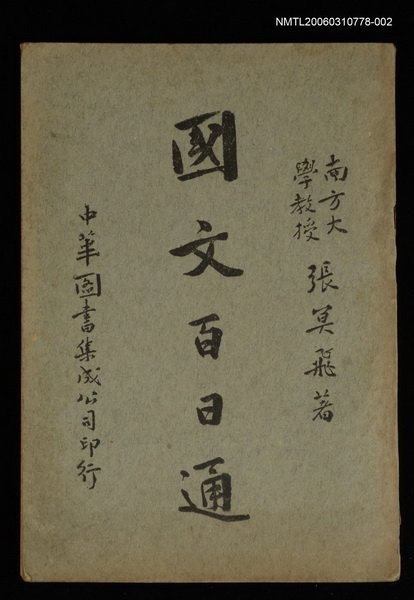 NMTL20060310778-002
南方大
學教授
張冥飛著
國文百日通
中華圖書集成公司印行